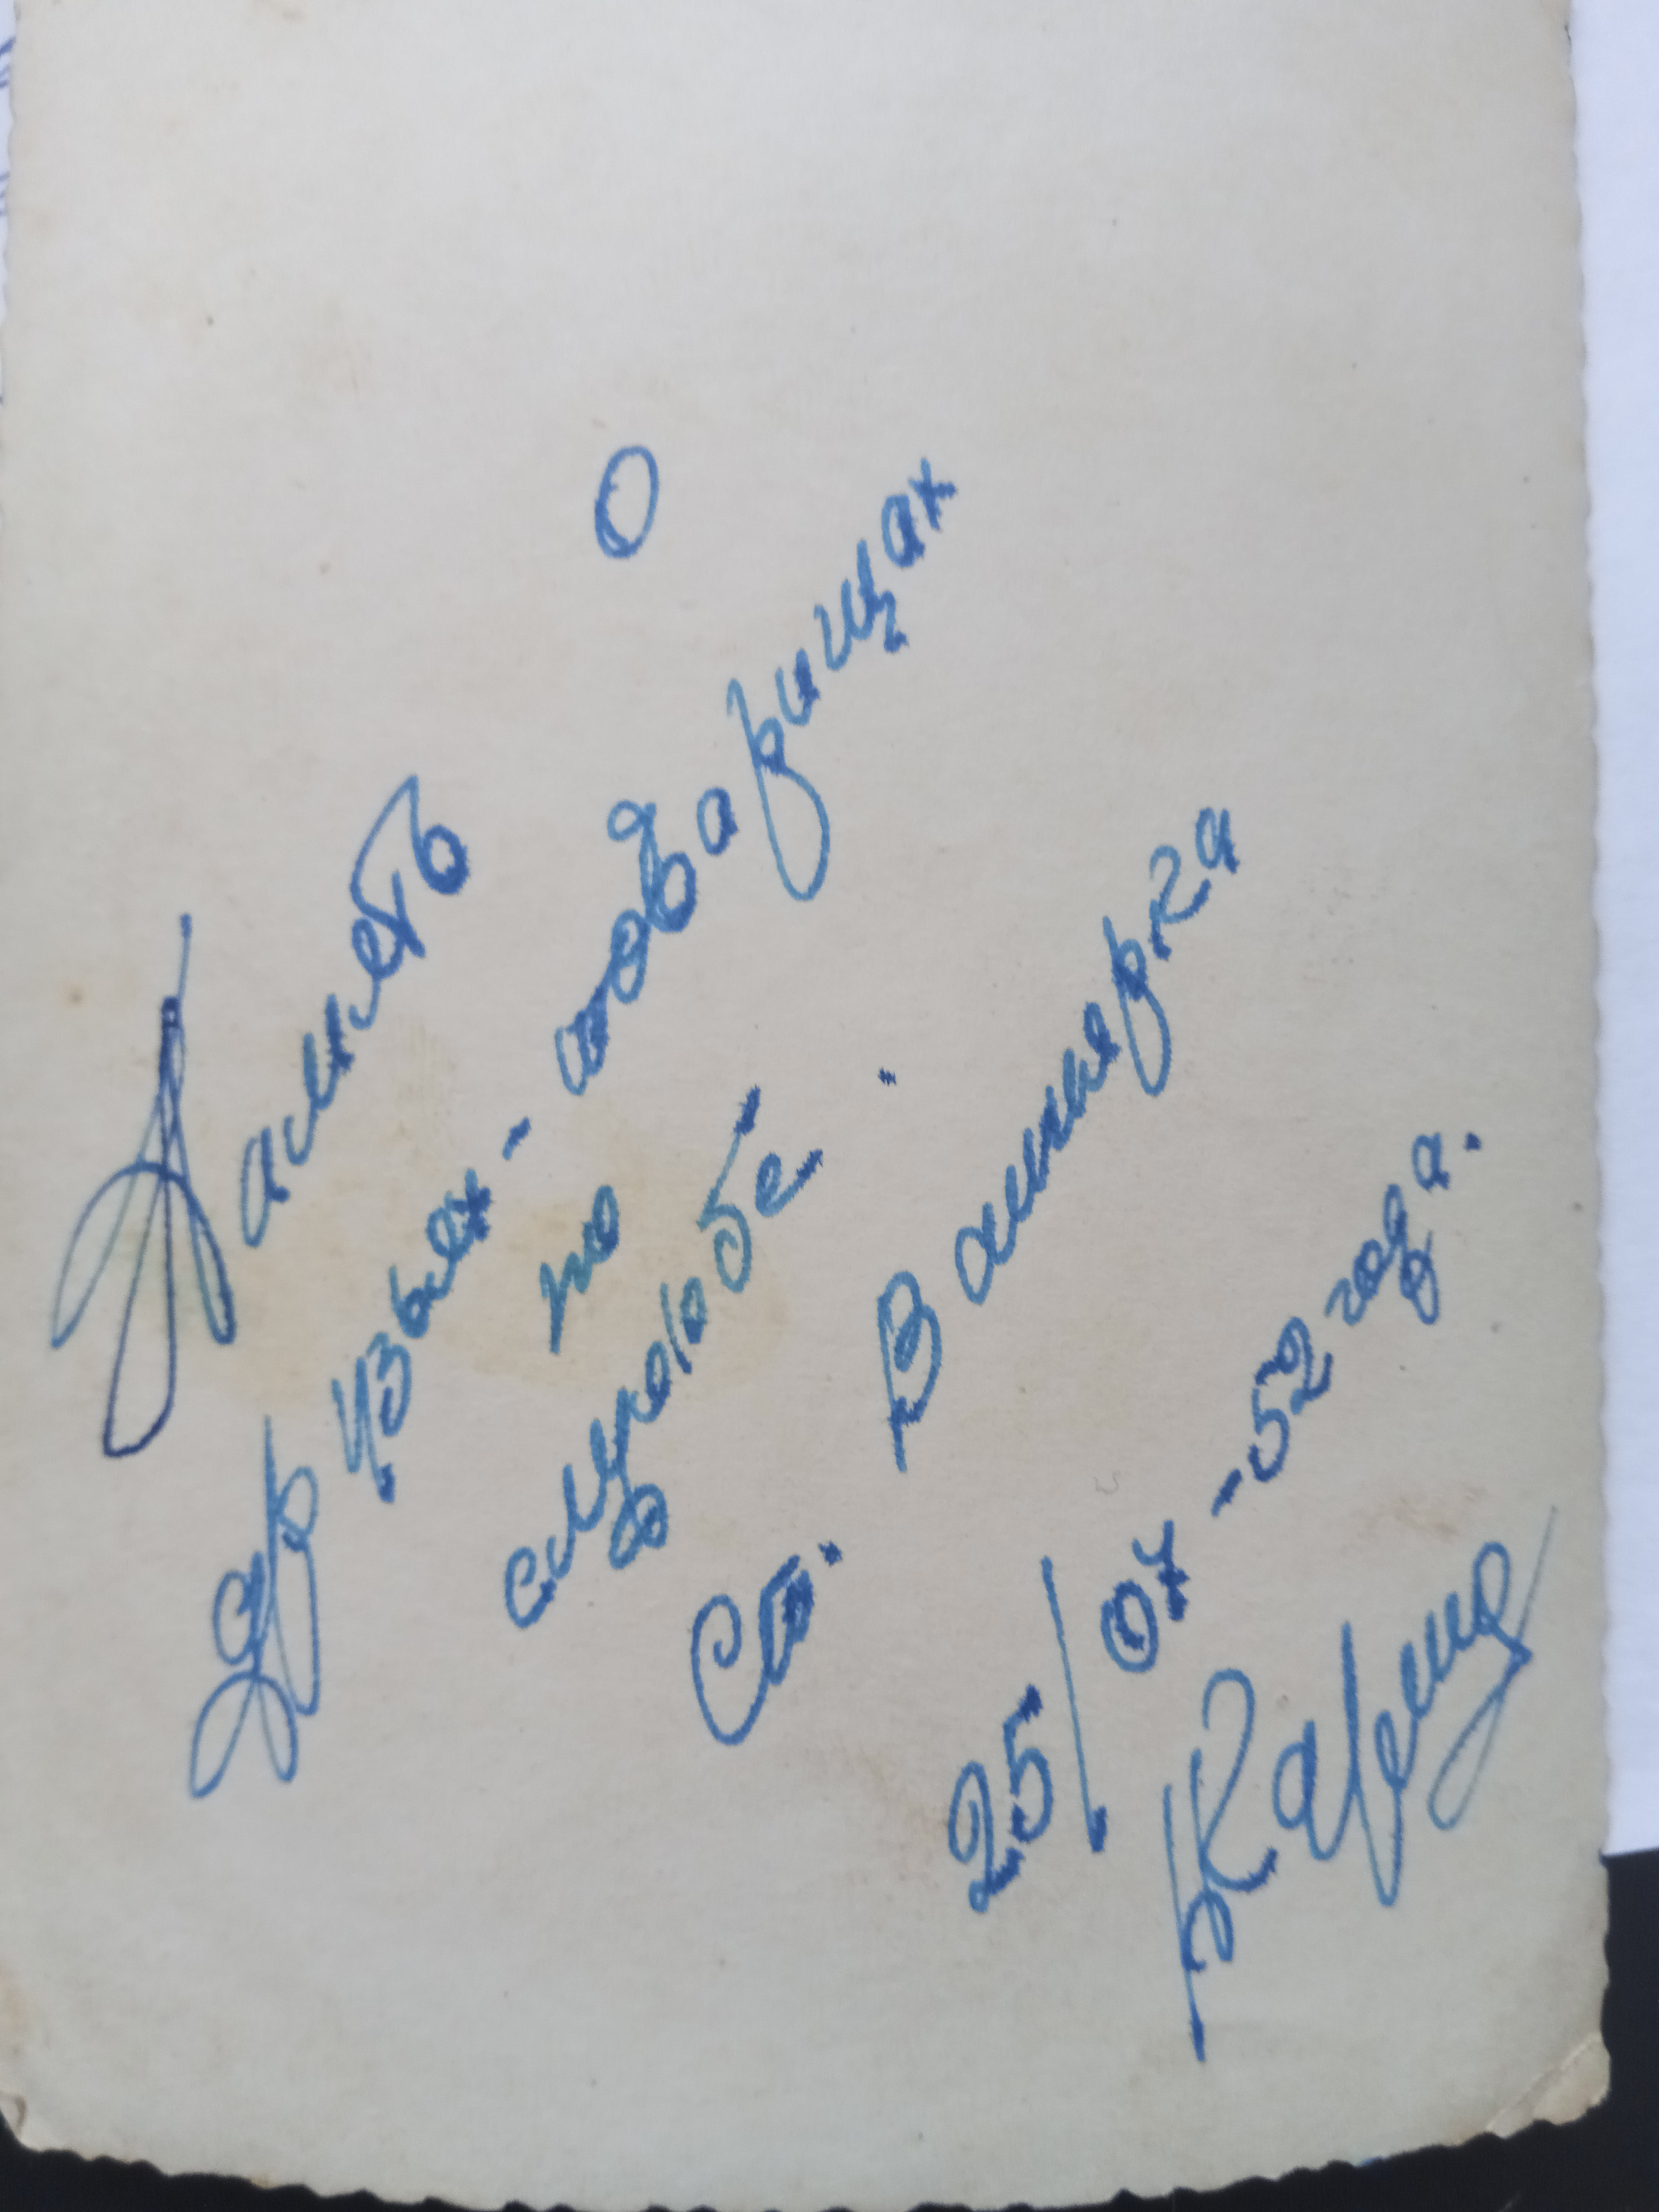 Память о
друзьях - товарищах
по
службе.
Ст. Ваннерга
25/07-52 года.